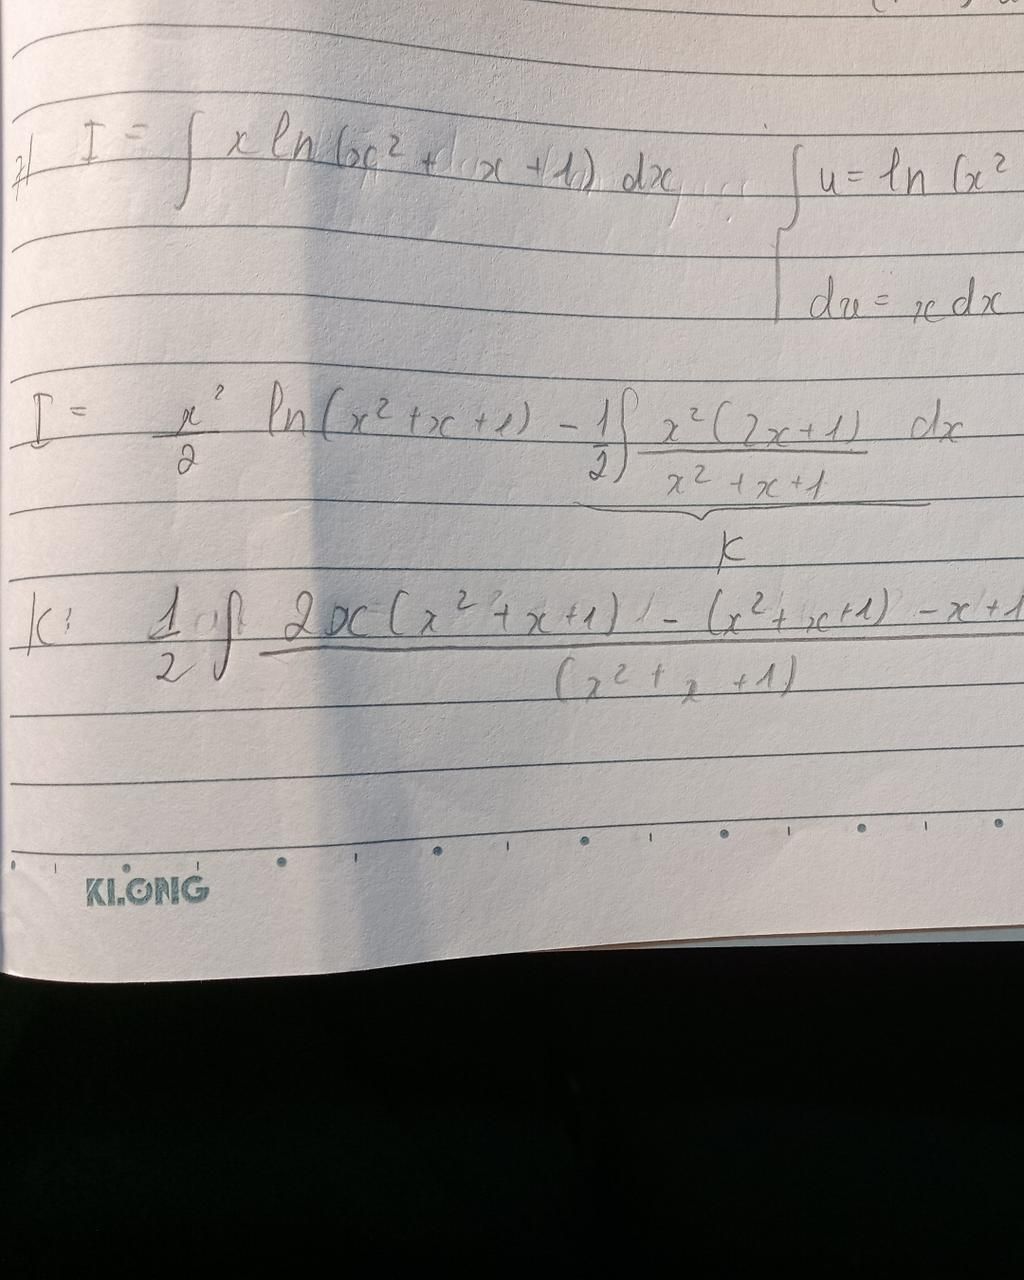 7) I = ∫ x ln (x² + x + 1) dx { u = ln (x²
du = x dx
I = x²/2 ln (x² + x + 1) - 1/2 ∫ x² (2x + 1) / x² + x + 1 dx
K
K: 1/2 ∫ 2x (x² + x + 1) - (x² + x + 1) - x + 1 / (x² + x + 1)
KLONG